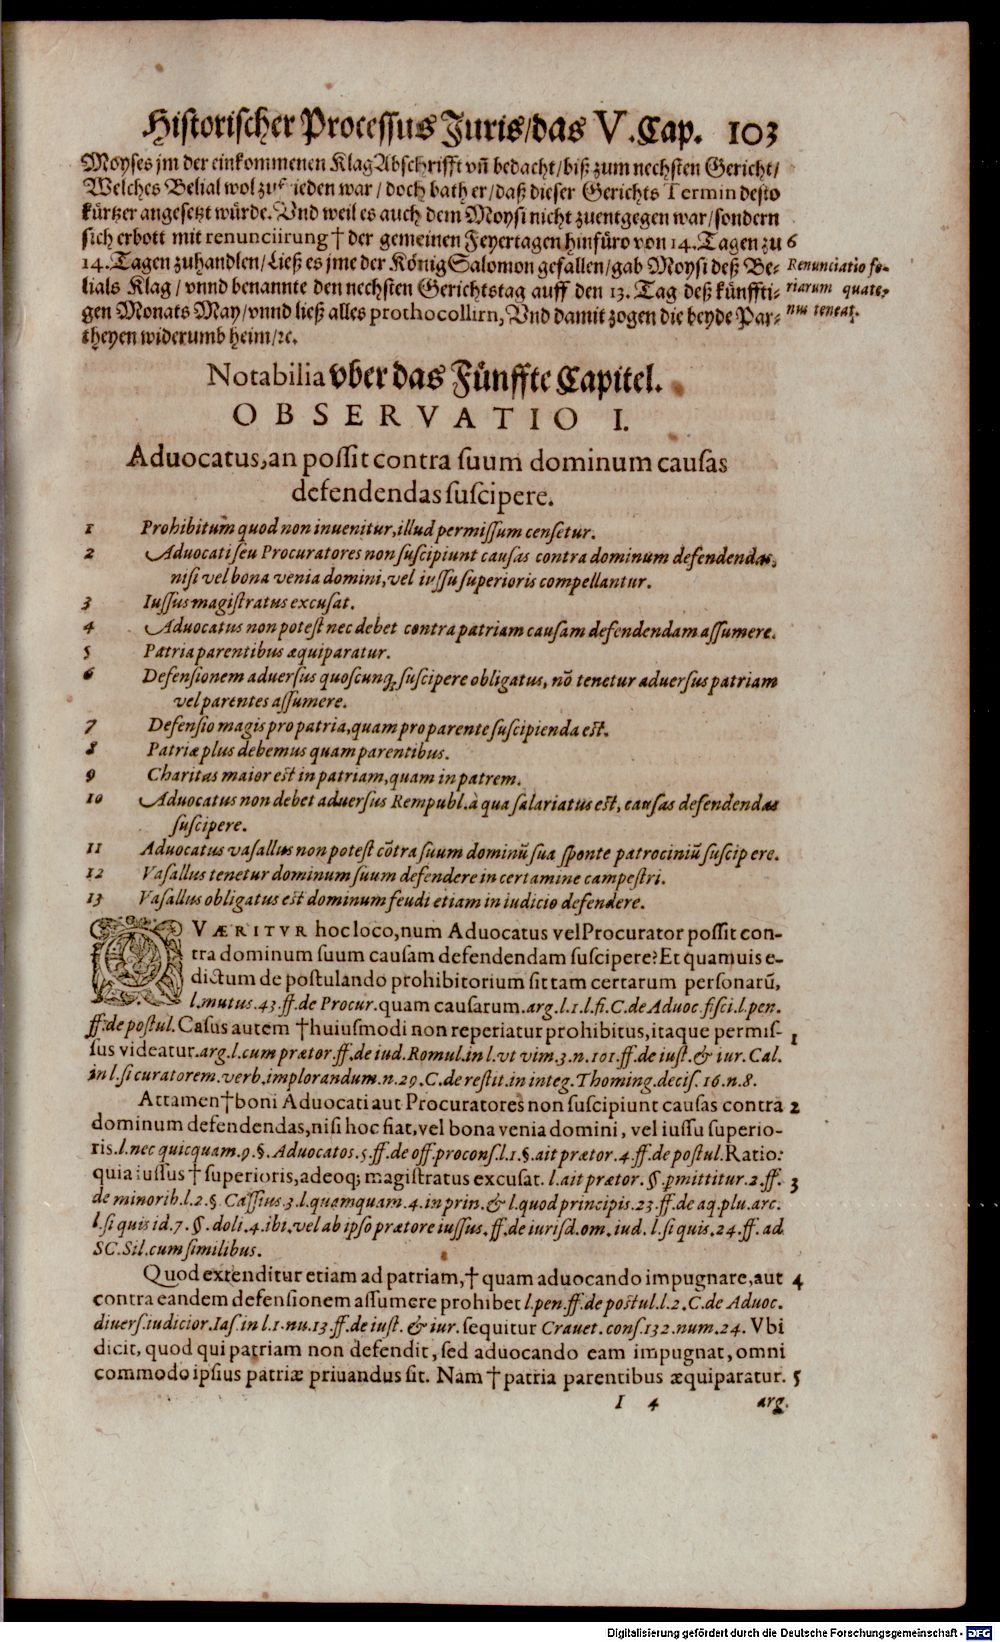 Historischer Processus Juris/das V. Cap. 103
Moyses jm der einkommenen Klag Abschrifft vñ bedacht/biß zum nechsten Gericht/
Welches Belial wol zufrieden war/doch bath er/daß dieser Gerichts Termin desto
kürtzer angesetzt würde. Vnd weil es auch dem Moysi nicht zuentgegen war/sondern
sich erbott mit renunciirung † der gemeinen Feyertagen hinfüro von 14. Tagen zu 6
14. Tagen zuhandlen/Ließ es jme der König Salomon gefallen/gab Moysi deß Be- Renunciatio fe-
lials Klag/vnnd benannte den nechsten Gerichtstag auff den 13. Tag deß künffti- riarum quate-
gen Monats May/vnnd ließ alles prothocollirn, Vnd damit zogen die beyde Par- nus teneat.
theyen widerumb heim/ꝛc.
Notabilia vber das Fünffte Capitel.
OBSERVATIO I.
Aduocatus, an possit contra suum dominum causas
defendendas suscipere.
1 Prohibitum quod non inuenitur, illud permissum censetur.
2 Aduocati seu Procuratores non suscipiunt causas contra dominum defendendas,
nisi vel bona venia domini, vel iussu superioris compellantur.
3 Iussus magistratus excusat.
4 Aduocatus non potest nec debet contra patriam causam defendendam assumere.
5 Patria parentibus æquiparatur.
6 Defensionem aduersus quoscunq; suscipere obligatus, nõ tenetur aduersus patriam
vel parentes assumere.
7 Defensio magis pro patria, quam pro parente suscipienda est.
8 Patriæ plus debemus quam parentibus.
9 Charitas maior est in patriam, quam in patrem.
10 Aduocatus non debet aduersus Rempubl. à qua salariatus est, causas defendendas
suscipere.
11 Aduocatus vasallus non potest cõtra suum dominũ sua sponte patrociniũ suscipere.
12 Vasallus tenetur dominum suum defendere in certamine campestri.
13 Vasallus obligatus est dominum feudi etiam in iudicio defendere.
QVÆRITVR hoc loco, num Aduocatus vel Procurator possit con-
tra dominum suum causam defendendam suscipere? Et quamuis e-
dictum de postulando prohibitorium sit tam certarum personarũ,
l. mutus. 43. ff. de Procur. quam causarum. arg. l. 1. l. fi. C. de Aduoc. fisci. l. pen.
ff. de postul. Casus autem † huiusmodi non reperiatur prohibitus, itaque permis- 1
sus videatur. arg. l. cum prætor. ff. de iud. Romul. in l. vt vim. 3. n. 101. ff. de iust. & iur. Cal.
in l. si curatorem. verb. implorandum. n. 29. C. de restit. in integ. Thoming. decis. 16. n. 8.
Attamen † boni Aduocati aut Procuratores non suscipiunt causas contra 2
dominum defendendas, nisi hoc fiat, vel bona venia domini, vel iussu superio-
ris. l. nec quicquam. 9. §. Aduocatos. 5. ff. de off. procons. l. 1. §. ait prætor. 4. ff. de postul. Ratio:
quia iussus † superioris, adeoq; magistratus excusat. l. ait prætor. §. permittitur. 2. ff. 3
de minorib. l. 2. §. Cassius. 3. l. quamquam. 4. in prin. & l. quod principis. 23. ff. de aq. plu. arc.
l. si quis id. 7. §. doli. 4. ibi. vel ab ipso prætore iussus. ff. de iurisd. om. iud. l. si quis. 24. ff. ad
SC. Sil. cum similibus.
Quod extenditur etiam ad patriam, † quam aduocando impugnare, aut 4
contra eandem defensionem assumere prohibet l. pen. ff. de postul. l. 2. C. de Aduoc.
diuers. iudicior. Ias. in l. 1. nu. 13. ff. de iust. & iur. sequitur Crauet. cons. 132. num. 24. Vbi
dicit, quod qui patriam non defendit, sed aduocando eam impugnat, omni
commodo ipsius patriæ priuandus sit. Nam † patria parentibus æquiparatur. 5
I 4 arg.
Digitalisierung gefördert durch die Deutsche Forschungsgemeinschaft - DFG